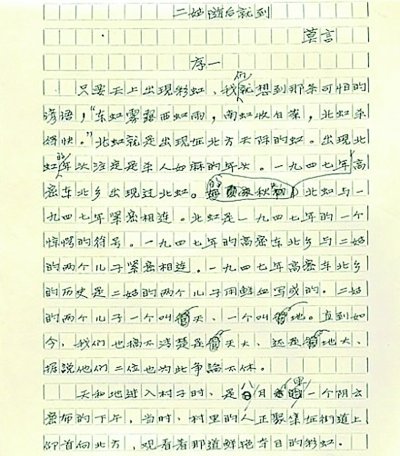 二姑随后就到
莫言
序一
只要天上出现彩虹,我们就想到那条可怕的
谚语:"东虹雾露西虹雨,南虹收白菜,北虹杀
得快。"北虹就是出现在北方天际的虹。出现北
虹的年次注定是杀人如麻的年次。一九四七年高
密东北乡出现过北虹。北虹与一
九四七年紧密相连。北虹是一九四七年的一个
惊愕的符号。一九四七年的高密东北乡与二姑
的两个儿子紧密相连。一九四七年高密东北乡
的历史是二姑的两个儿子用鲜血写成的。二姑
的两个儿子一个叫天,一个叫地。直到如
今,我们也搞不清楚是天大,还是地大,
据说他们二位也为此争论不休。
天和地进入村子时,是八月的一个阴云
密布的下午,当时,村里的人正聚集在街道上
仰首向北方,观看着那道鲜艳夺目的彩虹。